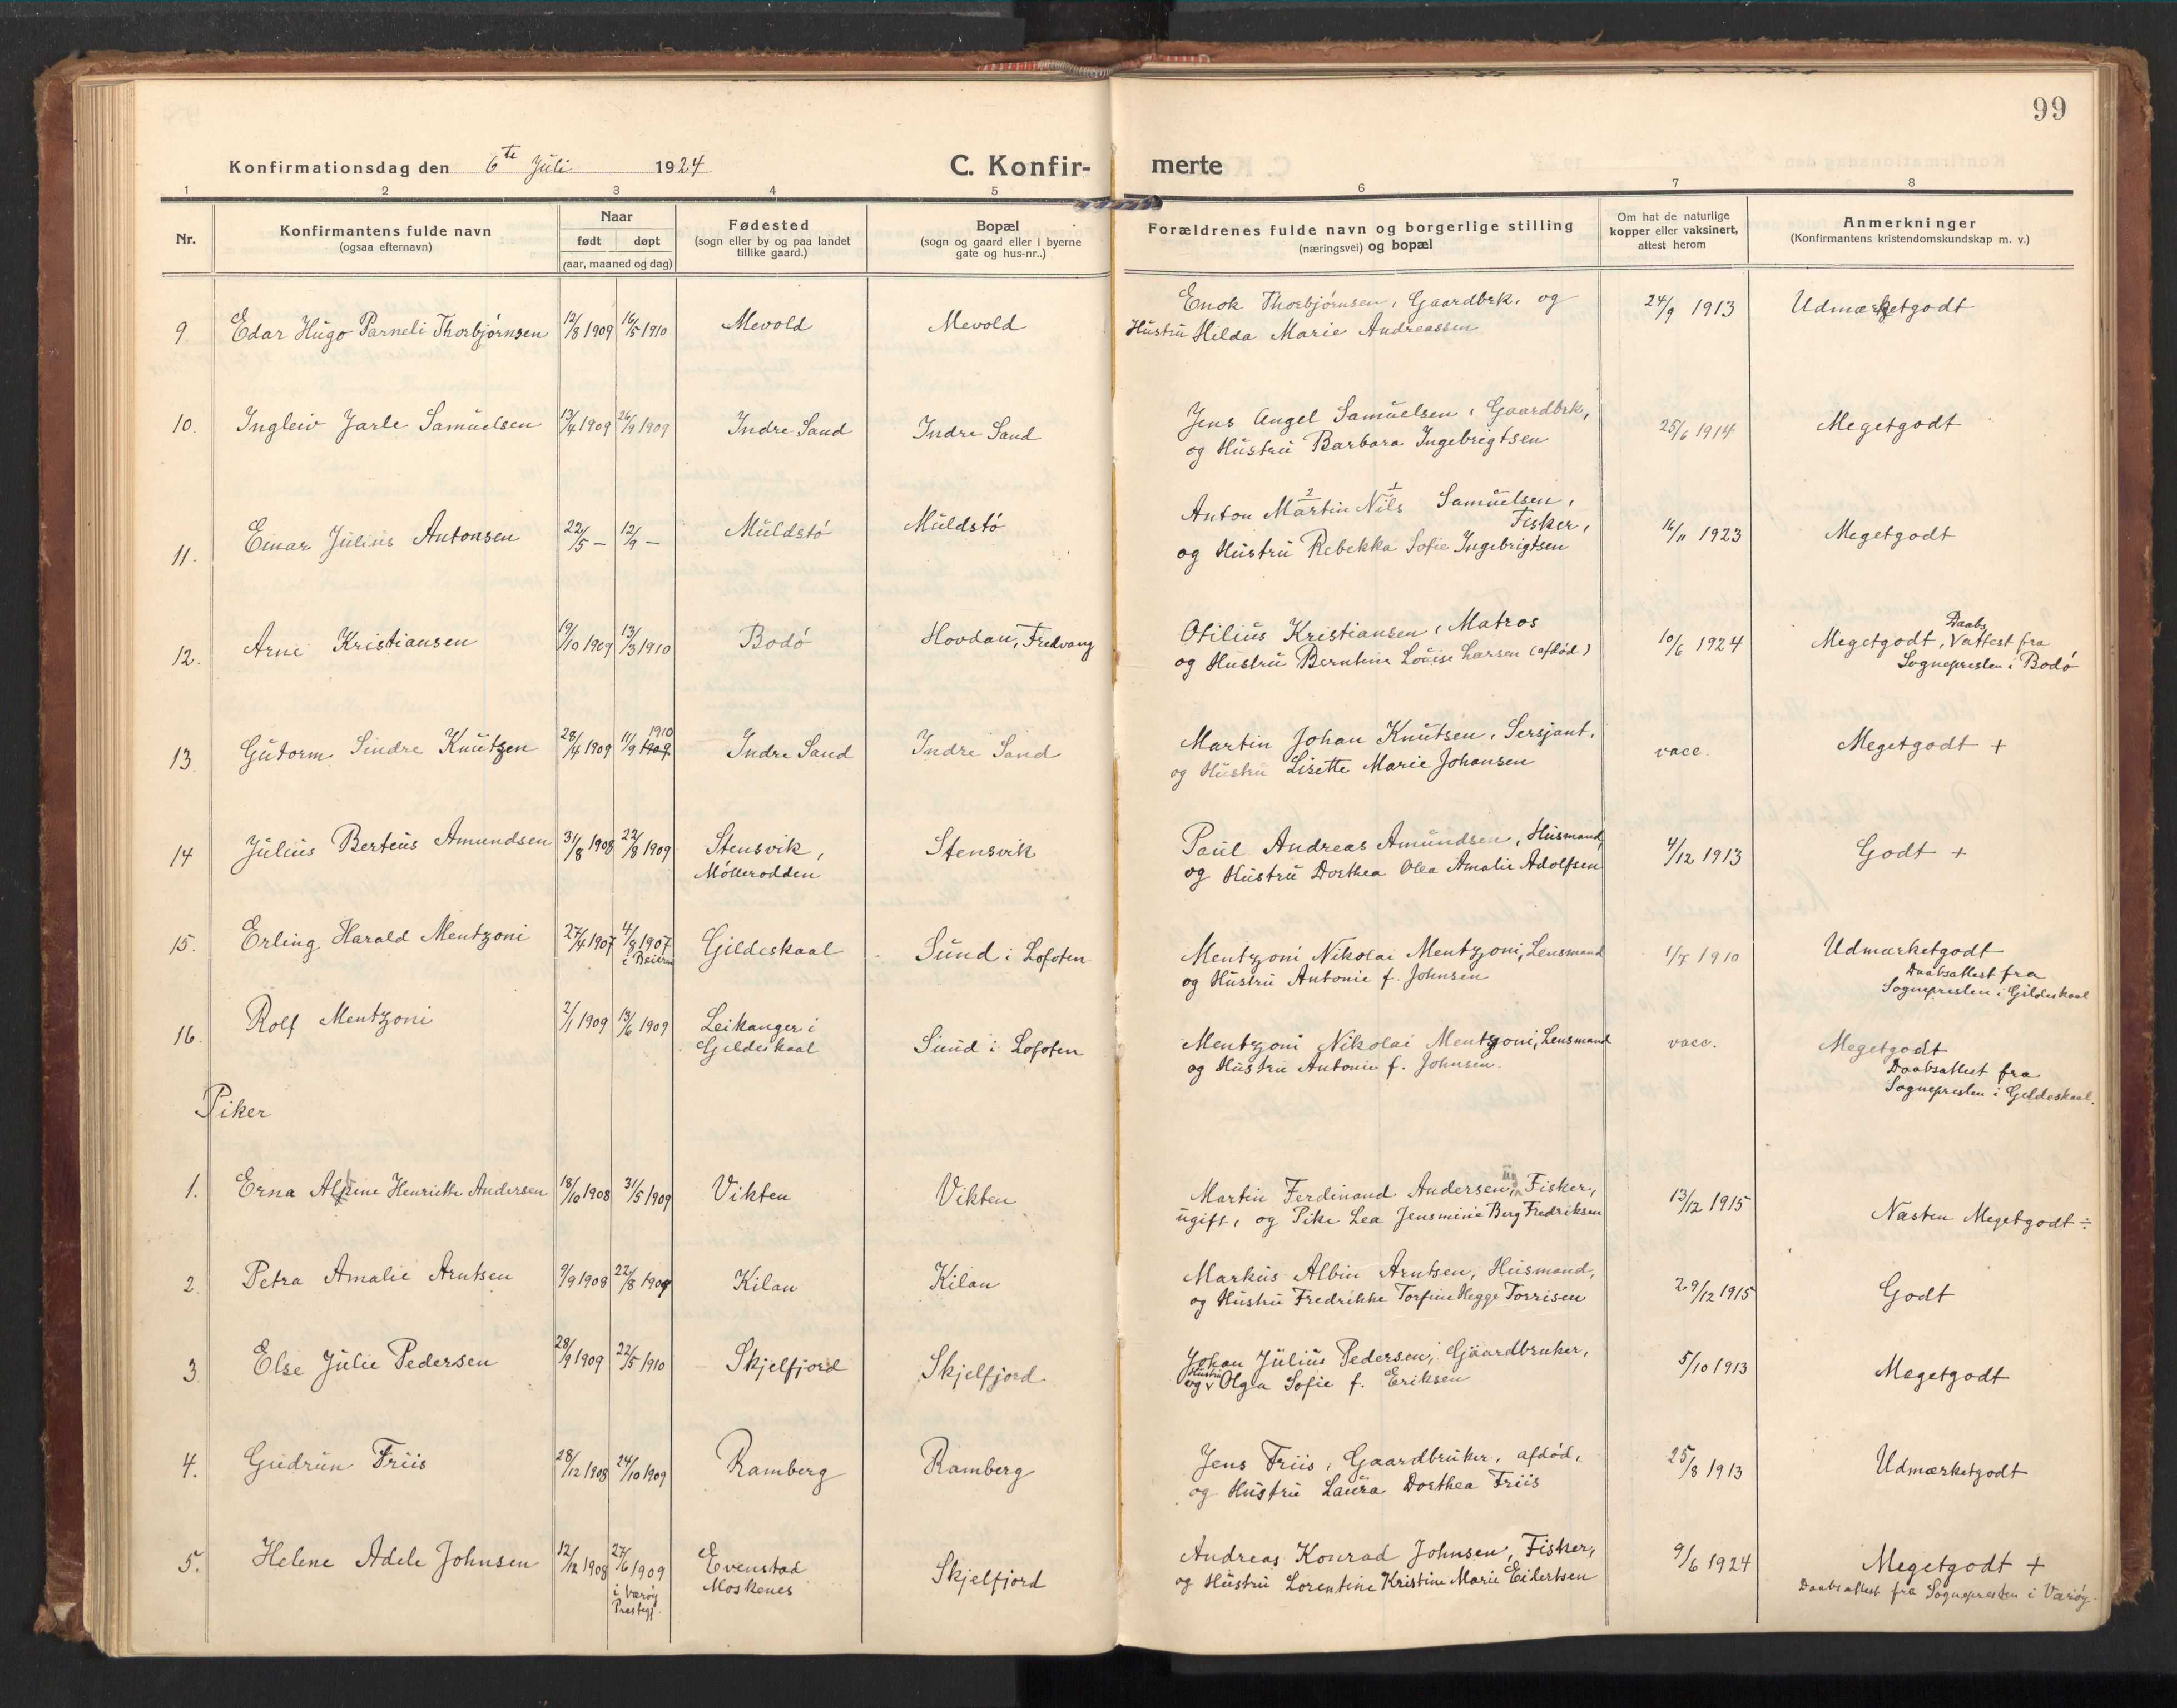 99
Konfirmationsdag den 6te Juli 1924
C. Konfir-
merte
1 2 3 4 5 6 7 8
Nr.
Konfirmantens fulde navn
(ogsaa efternavn)
Naar
født døpt
(aar, maaned og dag)
Fødested
(sogn eller by og paa landet
tillike gaard.)
Bopæl
(sogn og gaard eller i byerne
gate og hus-nr..)
Forældrenes fulde navn og borgerlige stilling
(næringsvei) og bopæl
Om hat de naturlige
kopper eller vaksinert,
attest herom
Anmerkninger
(Konfirmantens kristendomskundskap m. v.)
9 Edar Hugo Parneli Thorbjørnsen 12/8 1909 16/5 1910 Mevold Mevold
Enok Thorbjørnsen, Gaardbrk. og
Hustru Hilda Marie Andreassen
24/9 1913 Udmærketgodt
10. Ingleiv Jarle Samuelsen 13/4 1909 26/9 1909 Indre Sand Indre Sand
Jens Angel Samuelsen, Gaardbrk,
og Hustru Barbara Ingebrigtsen
25/6 1914 Megetgodt
11. Einar Julius Antonsen 22/5 – 12/9 – Muldstø Muldstø
2 1
Anton Martin Nils Samuelsen,
Fisker,
og Hustru Rebekka Sofie Ingebrigtsen
16/11 1923 Megetgodt
12. Arne Kristiansen 19/10 1909 13/3 1910 Bodø Hovdan, Fredvang
Otilius Kristiansen, Matros
og Hustru Berntine Louise Larsen (afdød)
10/6 1924 Megetgodt, Daabs attest fra
Sognepresten i Bodø
13 Gutorm Sindre Knutzen 28/4 1909 11/9 1909 1910 Indre Sand Indre Sand
Martin Johan Knutsen, Sersjant,
og Hustru Lisette Marie Johansen
vacc. Megetgodt +
14 Julius Berteus Amundsen 31/8 1908 22/8 1909 Stensvik,
Møllerodden
Stensvik
Paul Andreas Amundsen, Husmand,
og Hustru Dorthea Olea Amalie Adolfsen
4/12 1913 Godt +
15. Erling Harald Mentzoni 27/4 1907 4/8 1907
i Beiern
Gildeskaal Sund i Lofoten
Mentzoni Nikolai Mentzoni, Lensmand
og Hustru Antonie f. Johnsen
1/7 1910 Udmærketgodt
Daabsattest fra
Sognepresten i Gildeskaal
16. Rolf Mentzoni 2/1 1909 13/6 1909 Leikanger i
Gildeskaal
Sund i Lofoten
Mentzoni Nikolai Mentzoni, Lensmand
og Hustru Antonie f. Johnsen.
vacc. Megetgodt
Daabsattest fra
Sognepresten i Gildeskaal.
Piker
1. Erna Henriette Andersen 18/10 1908 31/5 1909 Vikten Vikten
Martin Ferdinand Andersen, Fisker,
ugift, og Pike Lea Jensmine Berg Fredriksen
13/12 1915 Næsten Megetgodt ÷
2. Petra Amalie Arntsen 9/9 1908 22/8 1909 Kilan Kilan
Markus Albin Arntsen, Husmand,
og Hustru Fredrikke Torfine Hegge Torrisen
29/12 1915 Godt
3 Else Julie Pedersen 28/9 1909 22/5 1910 Skjelfjord Skjelfjord
Johan Julius Pedersen, Gaardbruker,
og Hustru Olga Sofie f. Eriksen
5/10 1913 Megetgodt
4. Gudrun Friis 28/12 1908 24/10 1909 Ramberg Ramberg
Jens Friis, Gaardbruker, afdød,
og Hustru Laura Dorthea Friis
25/8 1913 Udmærketgodt
5. Helene Adele Johnsen 12/12 1908 27/6 1909
i Værøy
Prestegj.
Evenstad
Moskenes
Skjelfjord
Andreas Konrad Johnsen, Fisker,
og Hustru Lorentine Kristine Marie Eilertsen
9/6 1924 Megetgodt +
Daabsattest fra Sognepresten i Værøy.